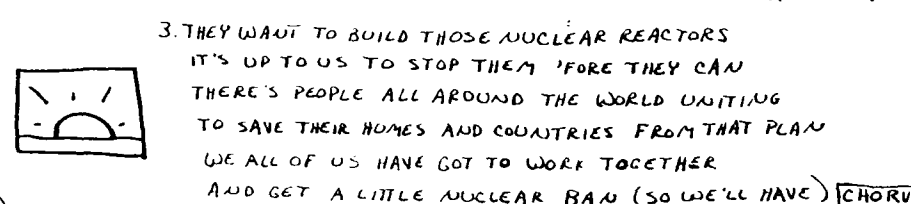 3. THEY WANT TO BUILD THOSE NUCLEAR REACTORS
IT'S UP TO US TO STOP THEM 'FORE THEY CAN
THERE'S PEOPLE ALL AROUND THE WORLD UNITING
TO SAVE THEIR HOMES AND COUNTRIES FROM THAT PLAN
WE ALL OF US HAVE GOT TO WORK TOGETHER
AND GET A LITTLE NUCLEAR BAN (SO WE'LL HAVE) CHORU